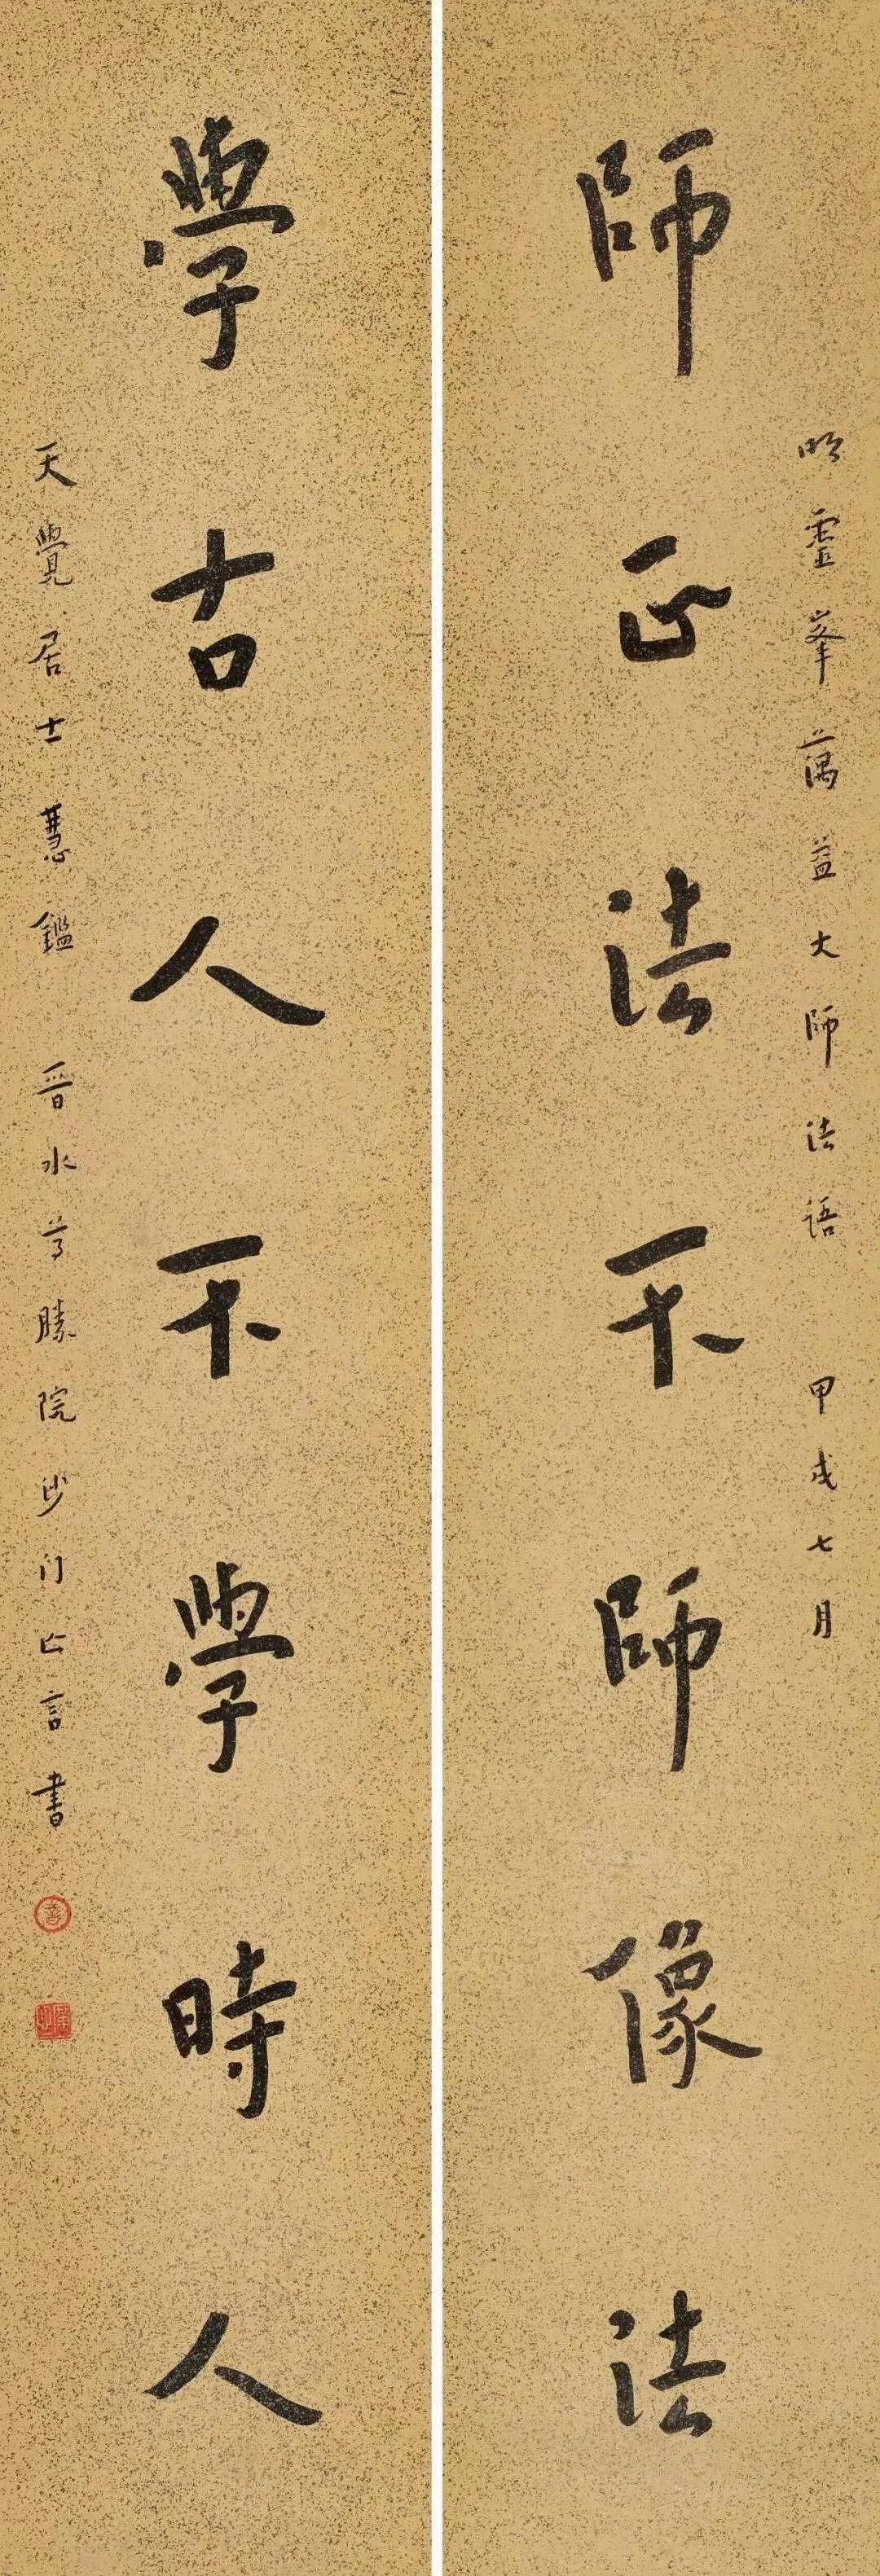 明靈峯蕅益大師法語 甲戌七月
師正法不師像法
學古人不學時人
天覺居士慧鑑 晉水尊勝院沙门亡言書